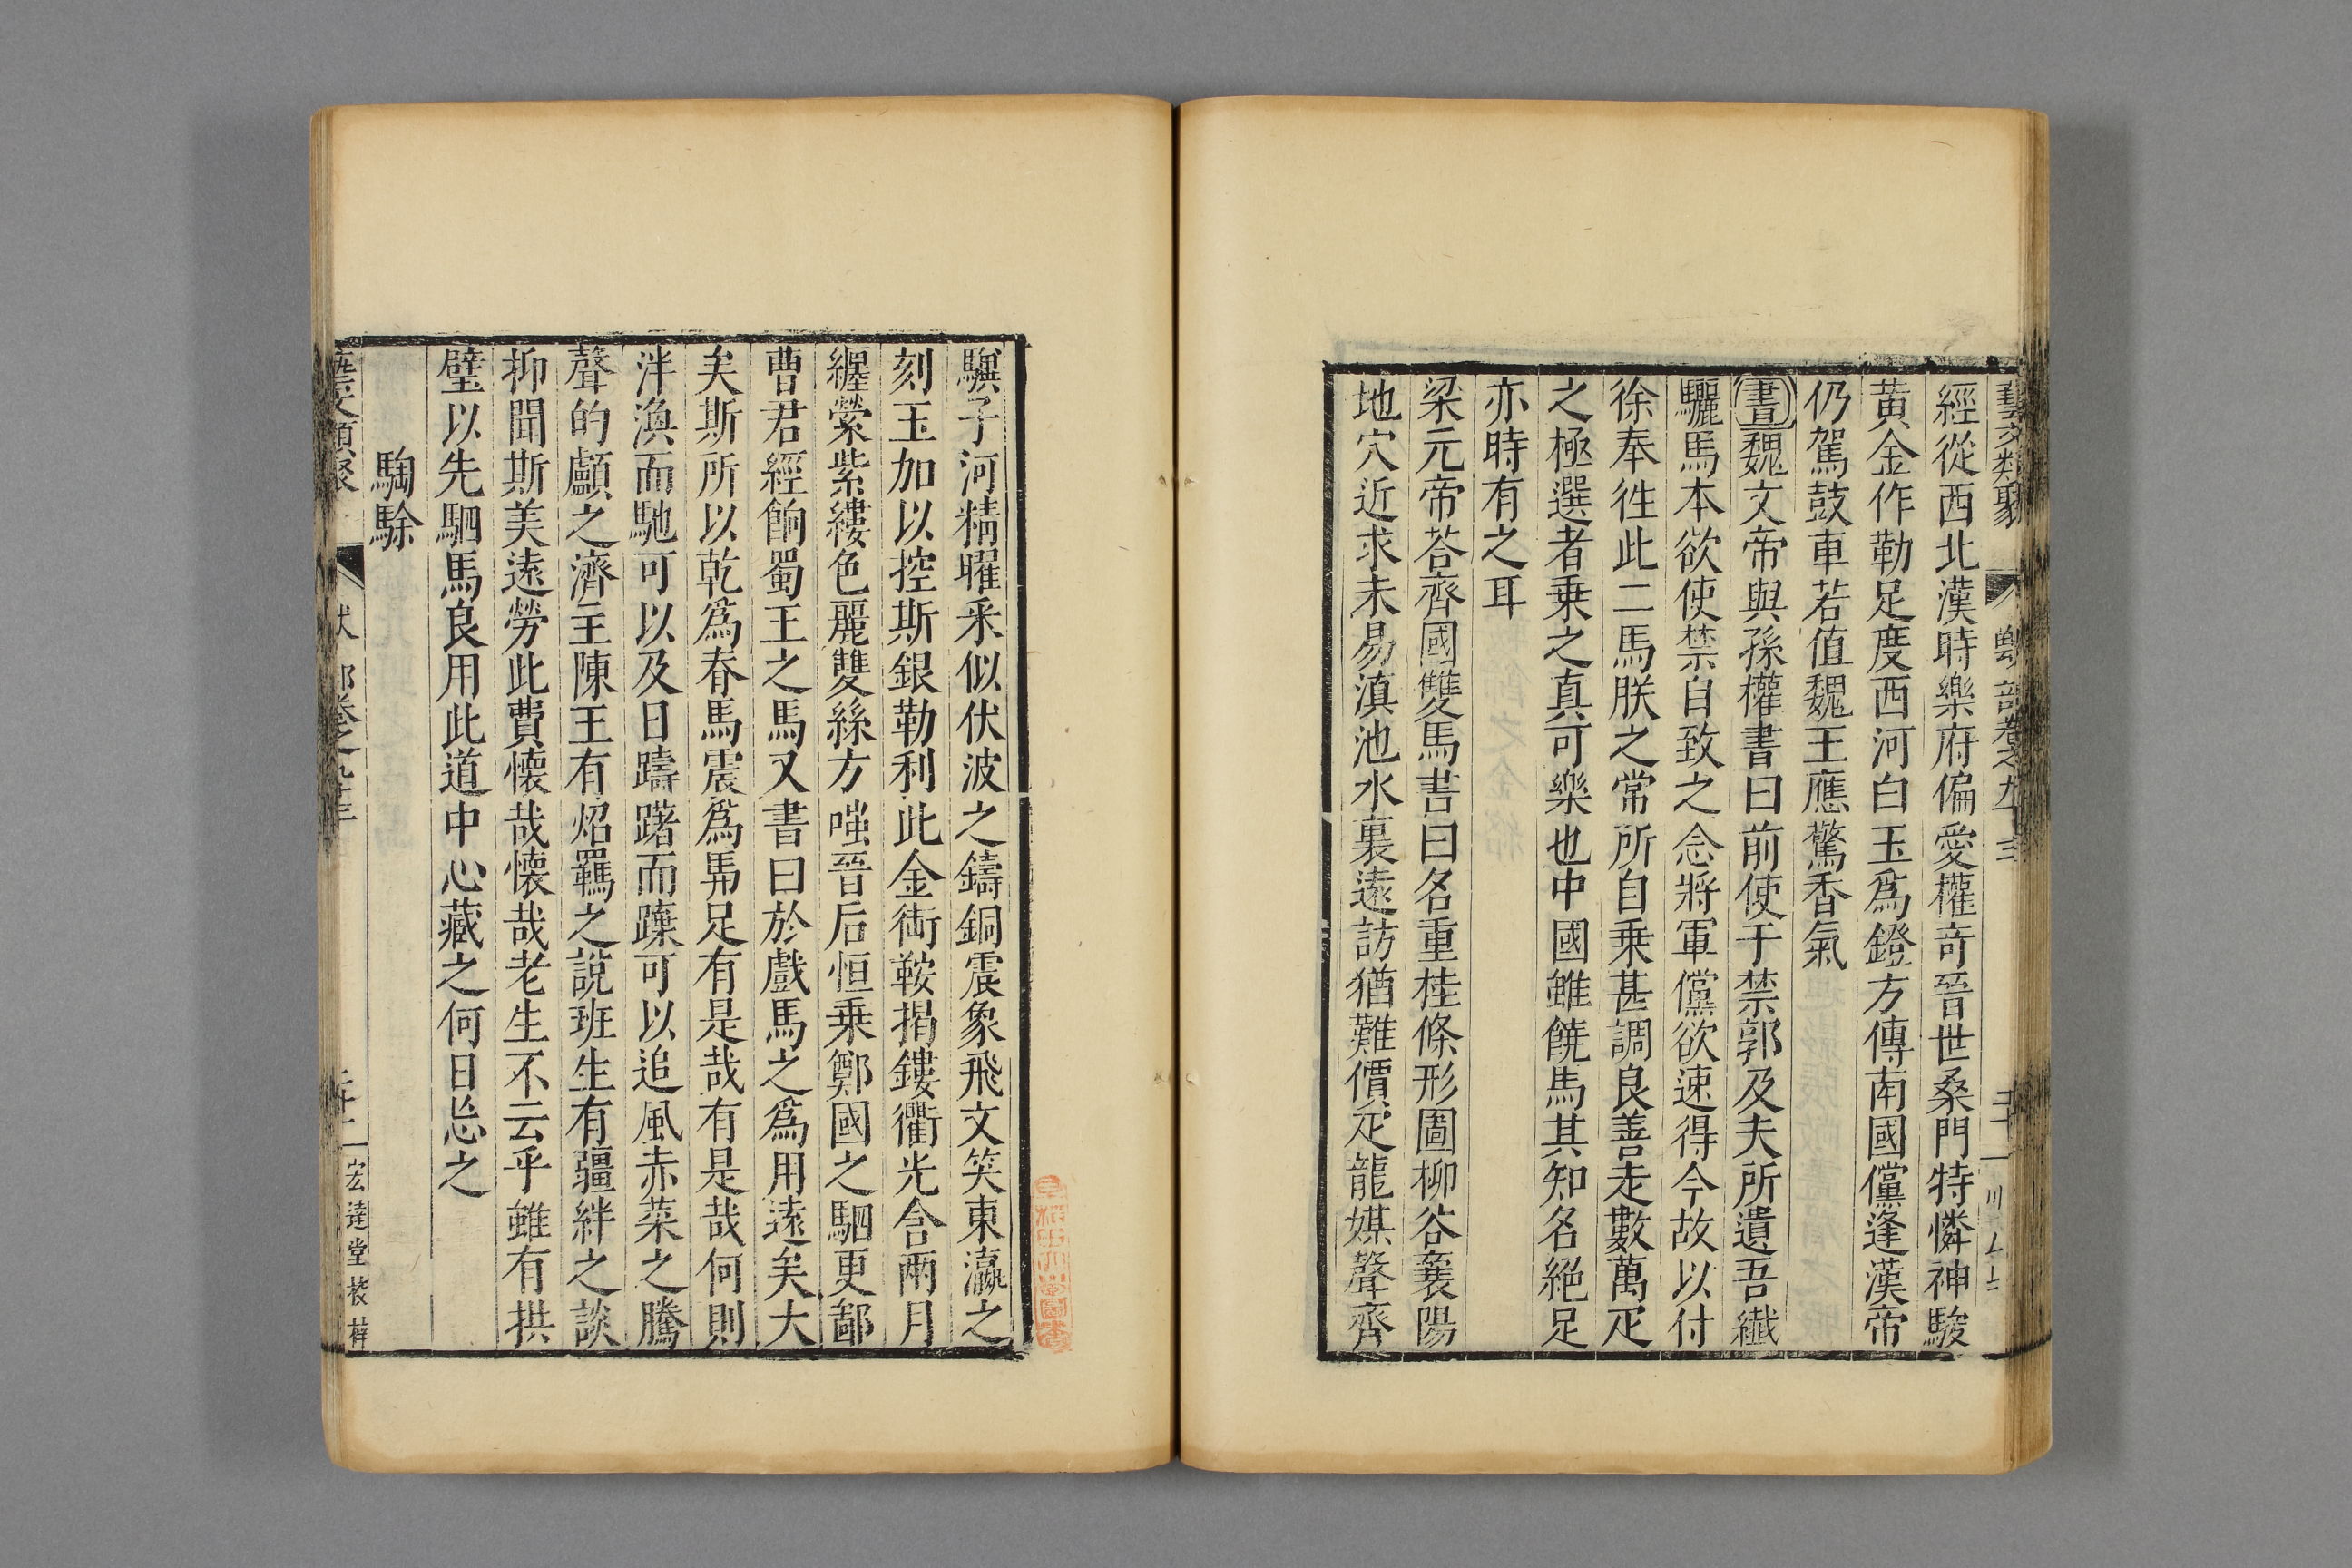 藝文類聚 獸部卷之九十三
經從西北漢時樂府偏愛權奇晉世桑門特憐神駿
黄金作勒足度西河白玉爲鐙方傳南國儻逢漢帝
仍駕鼓車若值魏王應驚香氣
書魏文帝與孫權書曰前使于禁郭及夫所遺吾纖
驪馬本欲使禁自致之念將軍儻欲速得今故以付
徐奉徃此二馬朕之常所自乗甚調良善走數萬疋
之極選者乗之真可樂也中國雖饒馬其知名絕足
亦時有之耳
梁元帝荅齊國雙馬書曰名重桂條形圖柳谷襄陽
地穴近求未易滇池水裏遠訪猶難價疋龍媒聲齊
驥子河精曜釆似伏波之鑄銅震象飛文笑東瀛之
刻玉加以控斯銀勒利此金衘鞍揭鏤衢光含兩月
纏縈紫縷色麗雙絲方嗤晉后恒乗鄭國之駟更鄙
曹君經餉蜀王之馬又書曰於戲馬之爲用遠矣大
矣斯所以乾爲春馬震爲馵足有是哉有是哉何則
泮渙而馳可以及日躊躇而躒可以追風赤菜之騰
聲的顱之濟主陳王有炤羈之說班生有疆絆之談
抑聞斯美遠勞此費懐哉懐哉老生不云乎雖有拱
璧以先駟馬良用此道中心藏之何日忘之
騊駼
藝文類聚 部卷之九十三
宏逹堂校梓